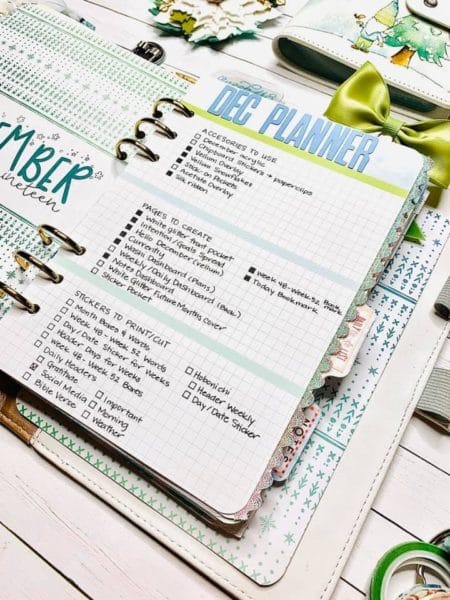 EMBER
nineteen
DEC PLANNER
ACCESORIES TO USE
December acrylic
Chipboard Stickers → paperclips
Vellum Snowflakes
Vellum Overlay
Stick on Pockets
Acetate Overlay
Silk ribbon
PAGES TO CREATE
White glitter than pocket
Intention/Goals Spread
Hello December (vellum)
Currently
Washi Dashboard (Plans)
Weekly/Daily Dashboard (Back)
Notes Dashboard
White Glitter Future Months cover
Sticker Pocket
Week 48 - Week 52 Book mark
Today Bookmark
STICKERS TO PRINT/CUT
Month Boxes & Words
Week 48 - Week 52 Words
Day/Date Sticker for Weekly
Header Days for Weeks
Week 48 - Week 52 Boxes
Daily Headers
Gratitude
Social Media
Bible Verse
Important
Morning
Weather
Hobonichi
Header Weekly
Day/Date Sticker